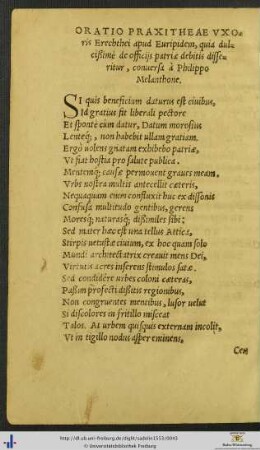 ORATIO PRAXITHEAE VXO-
ris Erechthei apud Euripidem, quia dul-
cißimè de officijs patriæ debitis disse-
ritur, conuersa à Philippo
Melanthone.
SI quis beneficium daturus est ciuibus,
Id gratius fit liberali pectore
Et sponte cùm datur, Datum morosius
Lenteq́;, non habebit ullam gratiam.
Ergò uolens gnatam exhibebo patriæ,
Vt fiat hostia pro salute publica.
Mentemq́; causæ permouent graues meam.
Vrbs nostra multis antecellit cæteris,
Nequaquam enim confluxit huc ex dissonis
Confusa multitudo gentibus, gerens
Moresq́; naturasq́; dißimiles sibi:
Sed mater hæc est una tellus Attica,
Stirpis uetustæ ciuium, ex hoc quam solo
Mundi architectatrix creauit mens Dei,
Virtutis acres inserens stimulos satæ.
Sed condidêre urbes coloni cæteras,
Paßim profecti dißitis regionibus,
Non congruentes mentibus, lusor uelut
Si discolores in fritillo misceat
Talos. At urbem quisquis externam incolit,
Vt in tigillo nodus asper eminens,
Cen
http://dl.ub.uni-freiburg.de/diglit/sabellic1553/0043
© Universitätsbibliothek Freiburg
Baden-Württemberg